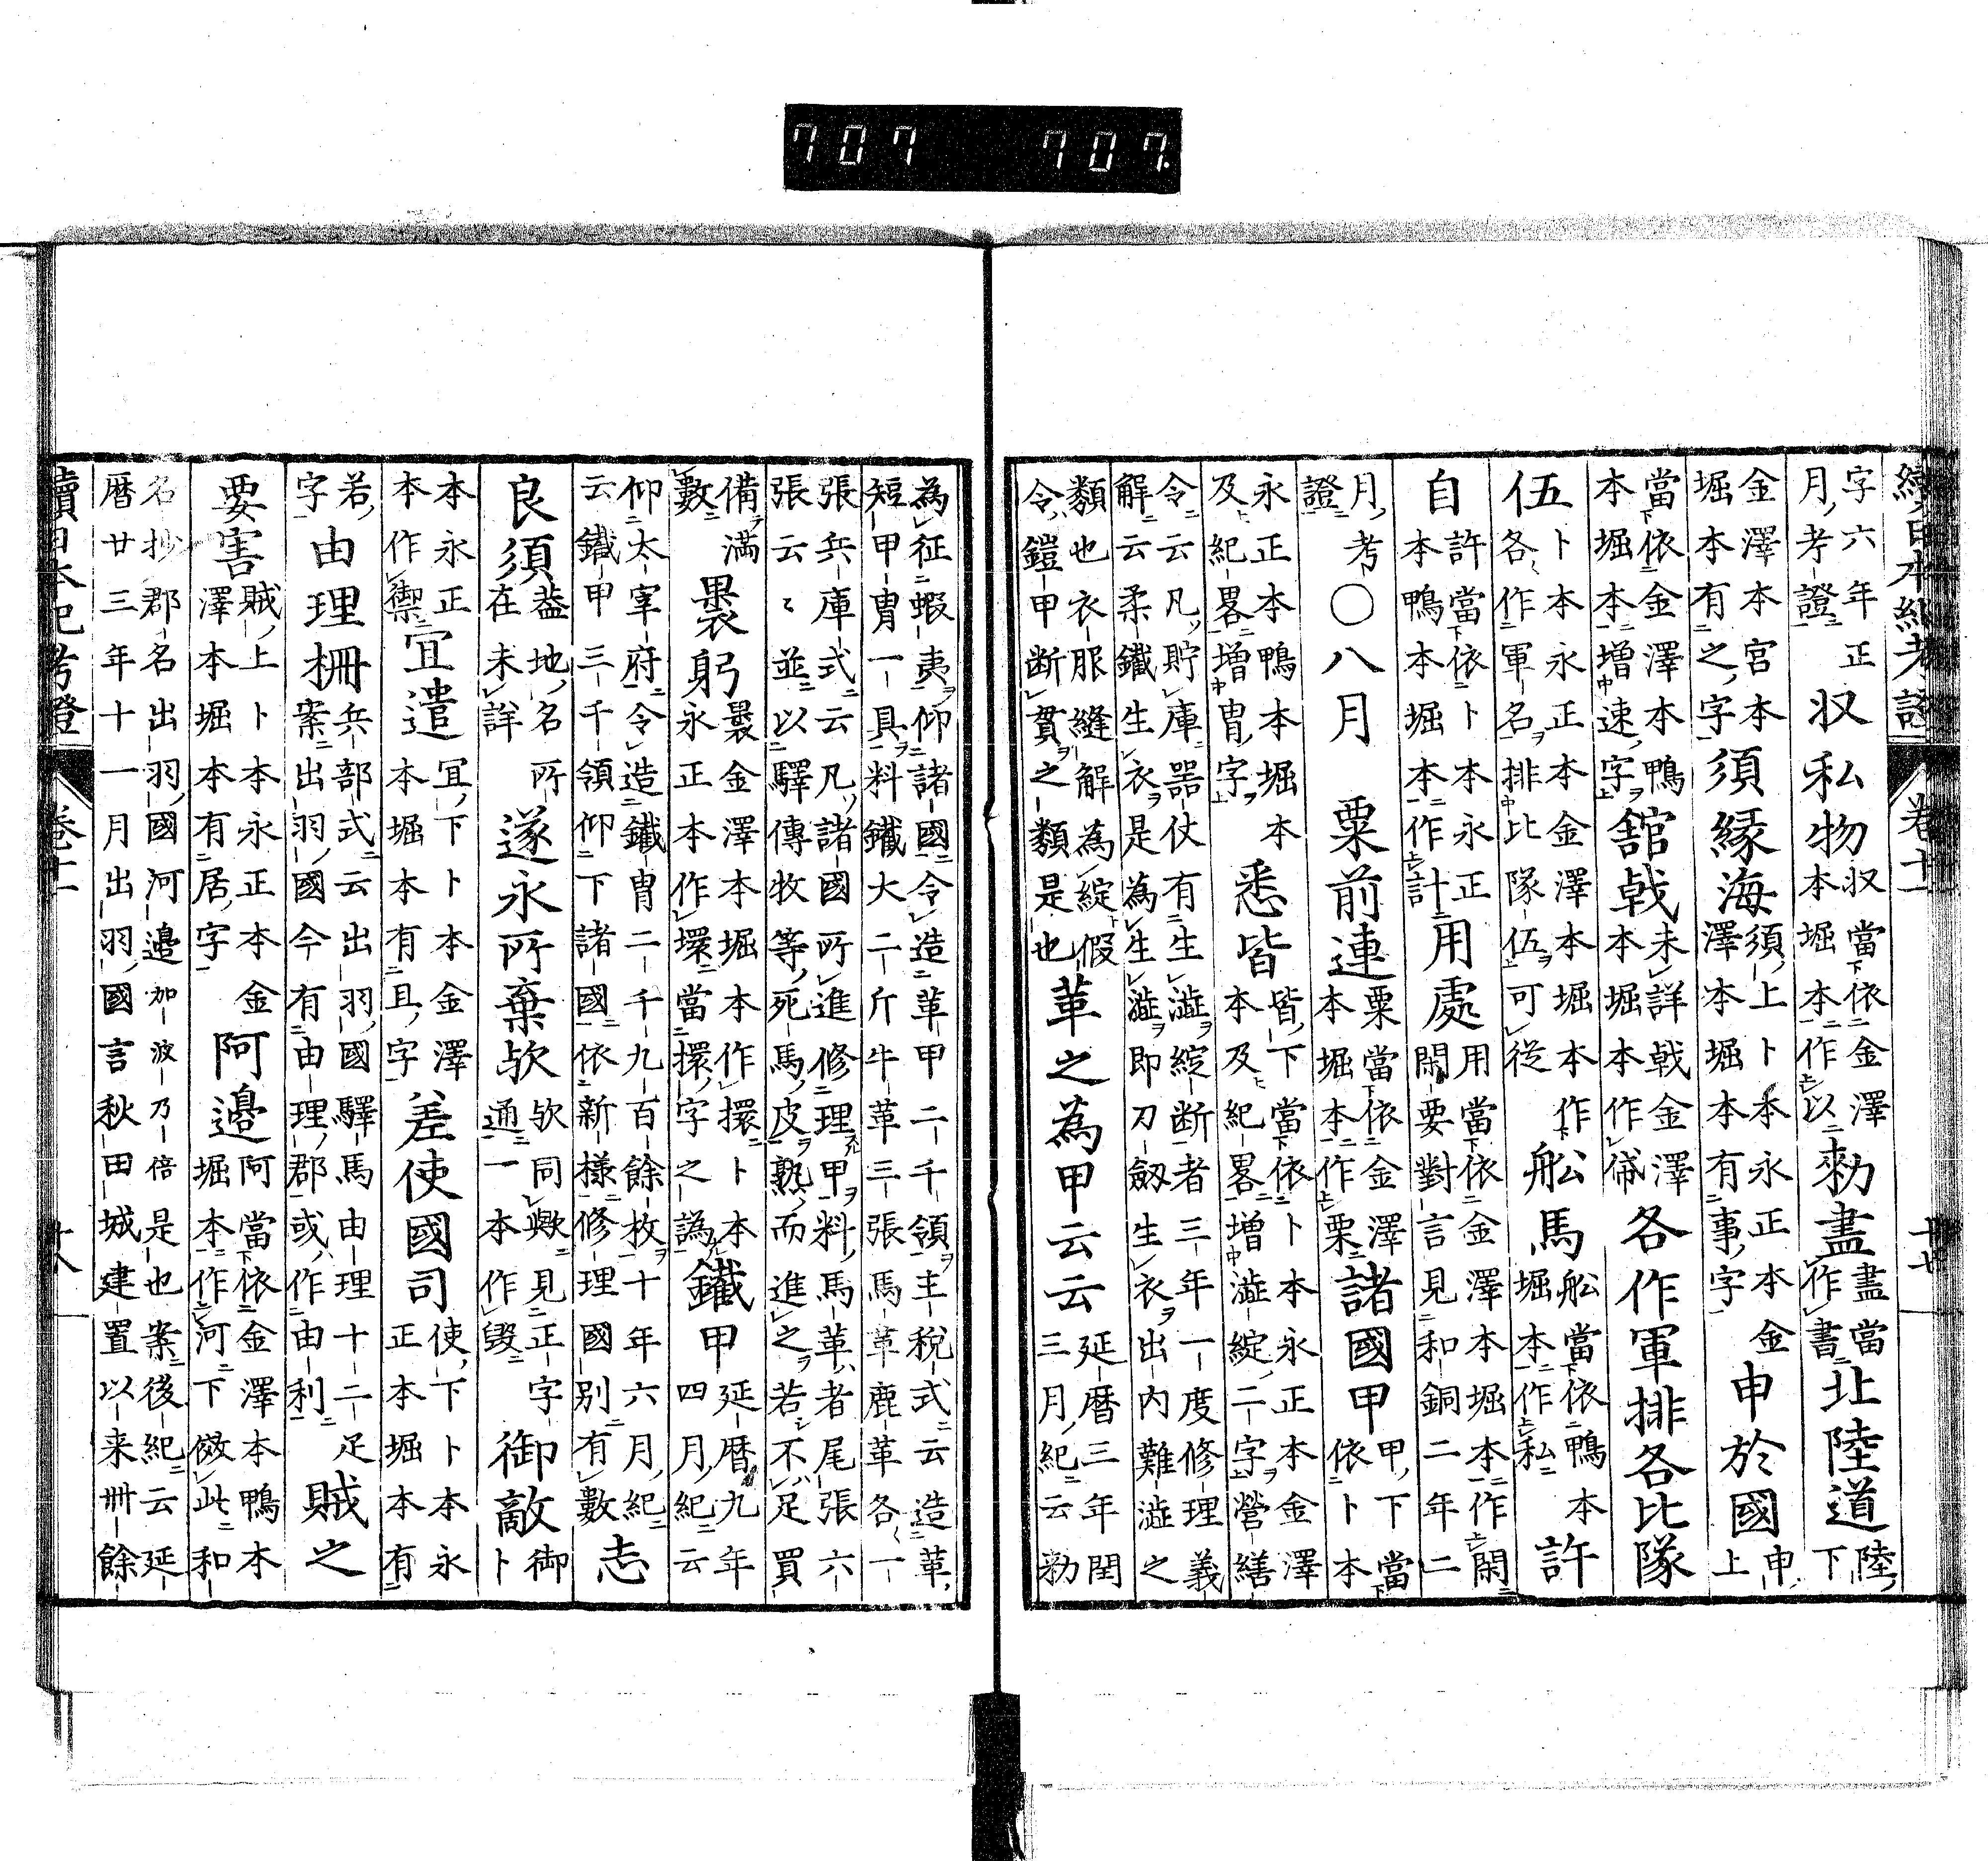 續日本紀考證 卷十一 十七
字六年正月考證収私物収當依金澤本堀本作以勅盡盡當作書北陸道陸下
金澤本宮本堀本有之字須縁海須上卜本永正本金澤本堀本有事字申於國申上
當依金澤本鴨本堀本増速字舘戟未詳戟金澤本堀本作各作軍排各比隊
伍卜本永正本金澤本堀本作各作軍名排比隊伍可從舩馬舩當依鴨本堀本作私許
自許當依卜本永正本鴨本堀本作計用處用當依金澤本堀本作閑閑要對言見和銅二年二
月考證〇八月 粟前連粟當依金澤本堀本作栗諸國甲甲下當依卜本
永正本鴨本堀本及紀畧増冑字悉皆皆下當依卜本永正本金澤本及紀畧増澁綻二字營繕
令云凡貯庫器仗有生澁綻断者三年一度修理義解云柔鐵生衣是為生澁即刀劔生衣出内難澁之
類也衣服縫解為綻假令鎧甲断貫之類是也革之為甲云云延暦三年閏三月紀云勅
為征蝦夷仰諸國令造革甲二千領主税式云造革短甲冑一具料鐵大二斤牛革三張馬革鹿革各一
張兵庫式云凡諸國所進修理甲料馬革者尾張六張云〻並以驛傳牧等死馬皮熟而進之若不足買
備滿數褁躬褁金澤本堀本作擐卜本永正本作環當擐字之譌鐵甲延暦九年四月紀云
仰太宰府令造鐵冑二千九百餘枚十年六月紀云鐵甲三千領仰下諸國依新樣修理國別有數志
良須蓋地名所在未詳遂永所棄欤欤同歟見正字通一本作毀御敵御卜
本永正本作禦宜遣冝下卜本金澤本堀本有且字差使國司使下卜本永正本堀本有
若字由理柵兵部式云出羽國驛馬由理十二疋案出羽國今有由理郡或作由利賊之
要害賊上卜本永正本金澤本堀本有居字阿邉阿當依金澤本鴨本堀本作河下倣此和
名抄郡名出羽國河邉加波乃倍是也案後紀云延暦廿三年十一月出羽國言秋田城建置以来卌餘
續日本紀考證 卷十一 十八
707 707